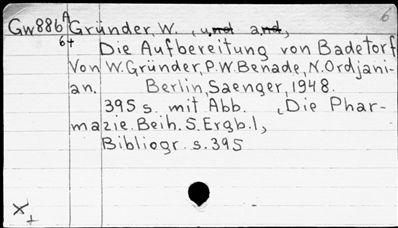 6
Gw88bA Gründer, W., u. a.,
6+ Die Aufbereitung von Badetorf
Von W. Gründer, P.W. Benade, N. Ordjani-
an. Berlin, Saenger, 1948.
395 s. mit Abb. (Die Phar-
mazie. Beih. 5. Ergb. 1,
Bibliogr. s. 395
x
+